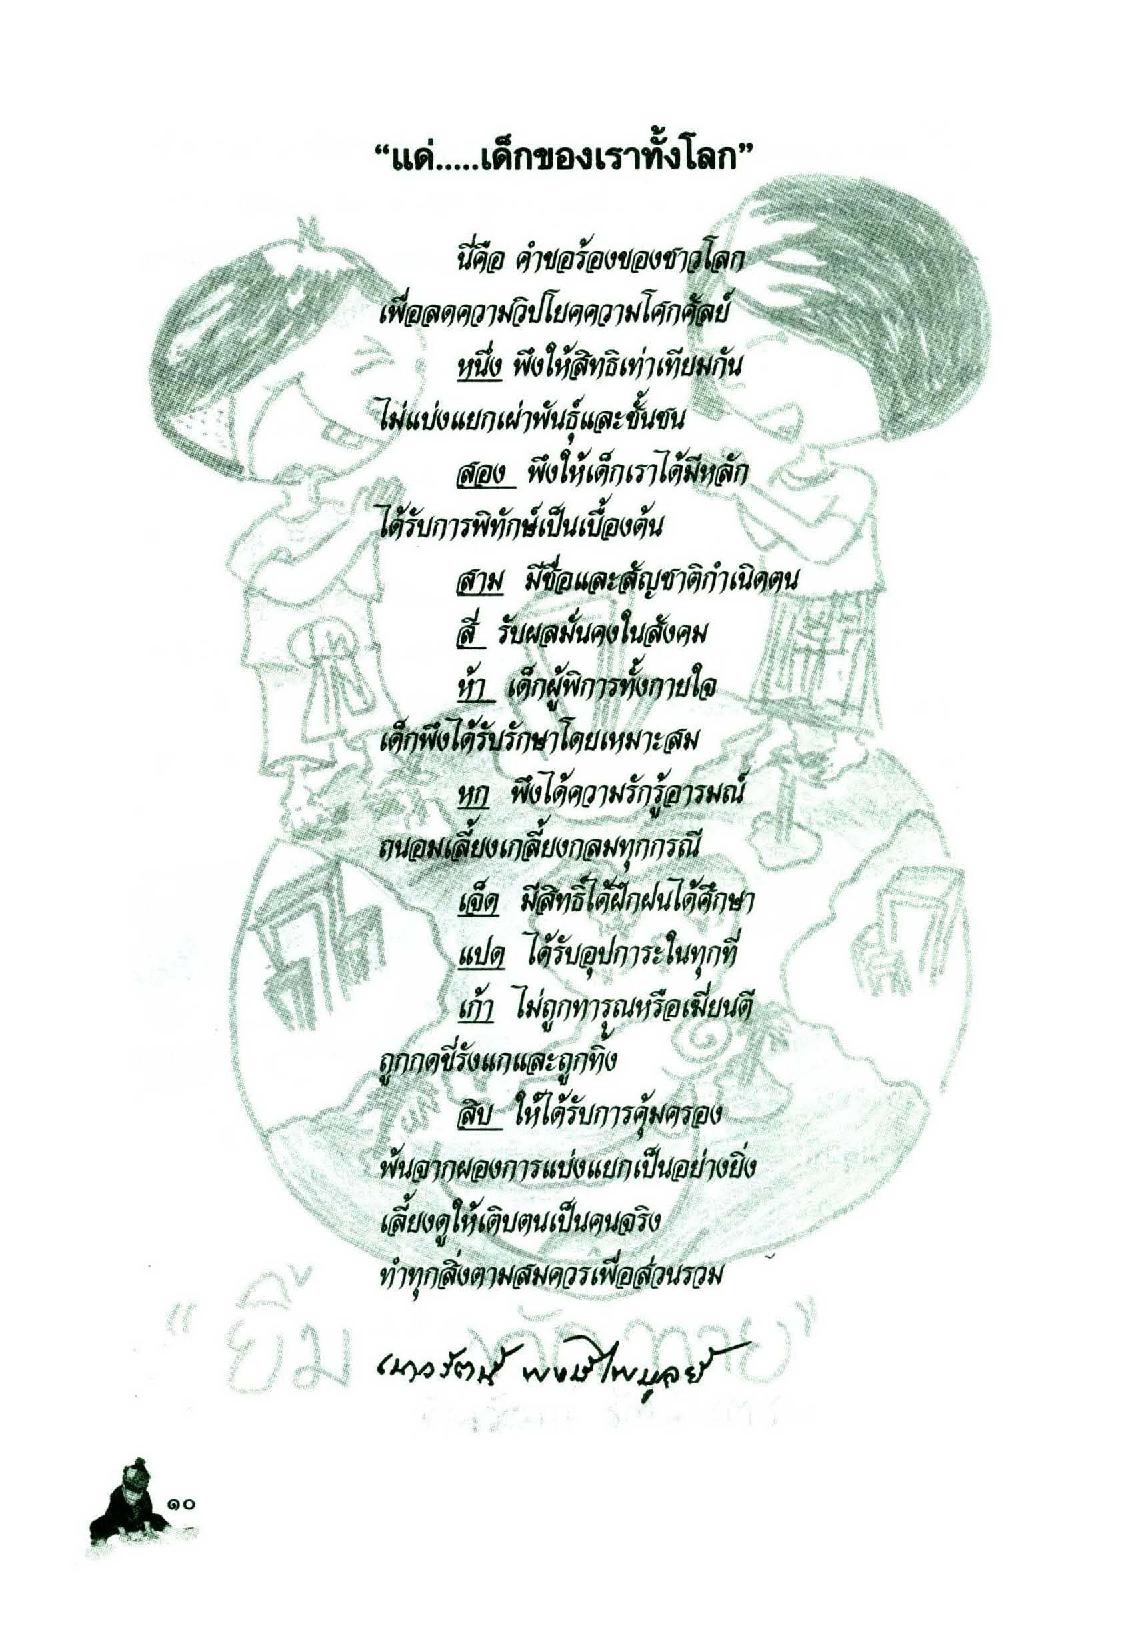 “แด่.....เด็กของเราทั้งโลก”
นี่คือ คำขอร้องของชาวโลก
เพื่อลดความวิปโยคความโศกศัลย์
หนึ่ง พึงให้สิทธิเท่าเทียมกัน
ไม่แบ่งแยกเผ่าพันธุ์และชั้นชน
สอง พึงให้เด็กเราได้มีหลัก
ได้รับการพิทักษ์เป็นเบื้องต้น
สาม มีชื่อและสัญชาติกำเนิดตน
สี่ รับผลมั่นคงในสังคม
ห้า เด็กผู้พิการทั้งกายใจ
เด็กพึงได้รับรักษาโดยเหมาะสม
หก พึงได้ความรักรู้อารมณ์
ถนอมเลี้ยงเกลี้ยงกลมทุกกรณี
เจ็ด มีสิทธิ์ได้ฝึกฝนได้ศึกษา
แปด ได้รับอุปการะในทุกที่
เก้า ไม่ถูกทารุณหรือเฆี่ยนตี
ถูกกดขี่รังแกและถูกทิ้ง
สิบ ให้ได้รับการคุ้มครอง
พ้นจากผองการแบ่งแยกเป็นอย่างยิ่ง
เลี้ยงดูให้เติบตนเป็นคนจริง
ทำทุกสิ่งตามสมควรเพื่อส่วนรวม
“ยิ้ม ทักทาย”
เนาวรัตน์ พงษ์ไพบูลย์
๑๐